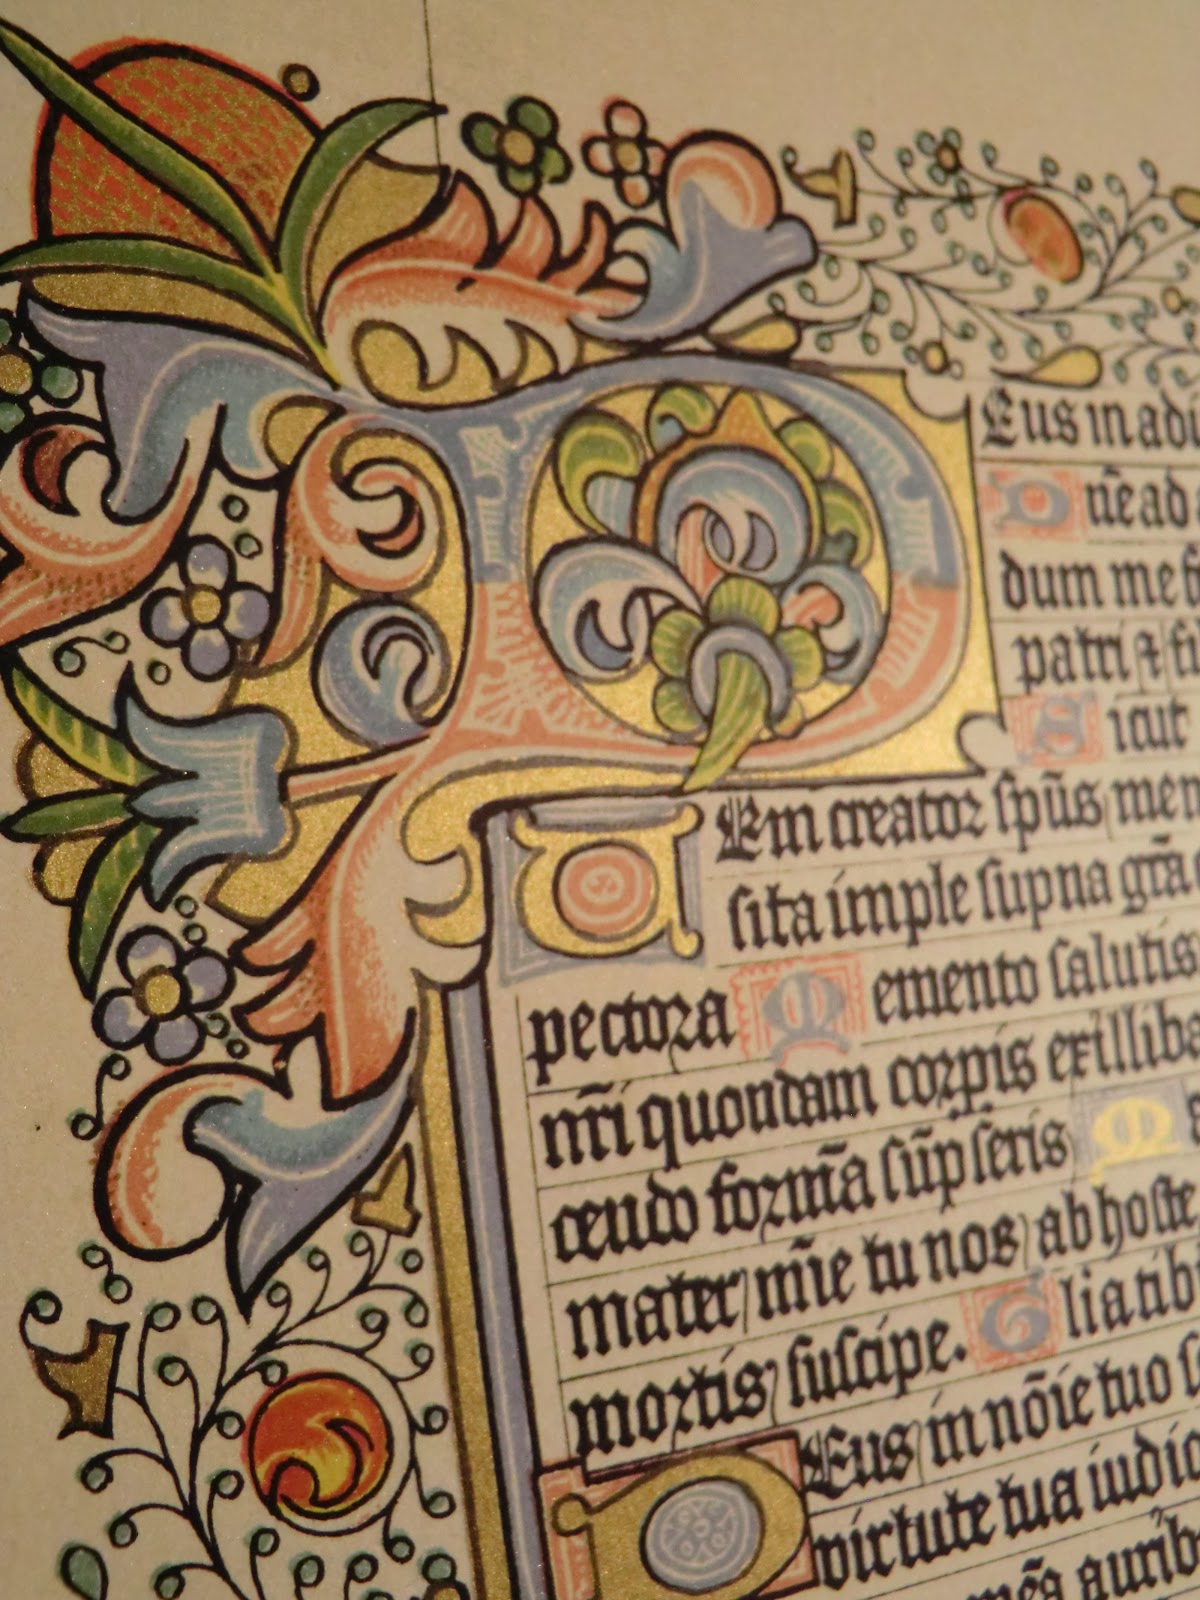 Deus in adi
Dñe ad
dum me f
patri & fi
Sicut
Veni creator spũs men
sita imple supna grã
pectora Memento salutis
nrĩ quondam corpis ex illiba
cendo formã sũpseris Ma
mater mĩe tu nos ab hoste
mortis suscipe. Glia tib
Deus in nõie tuo s
virtute tua iudic
aurib